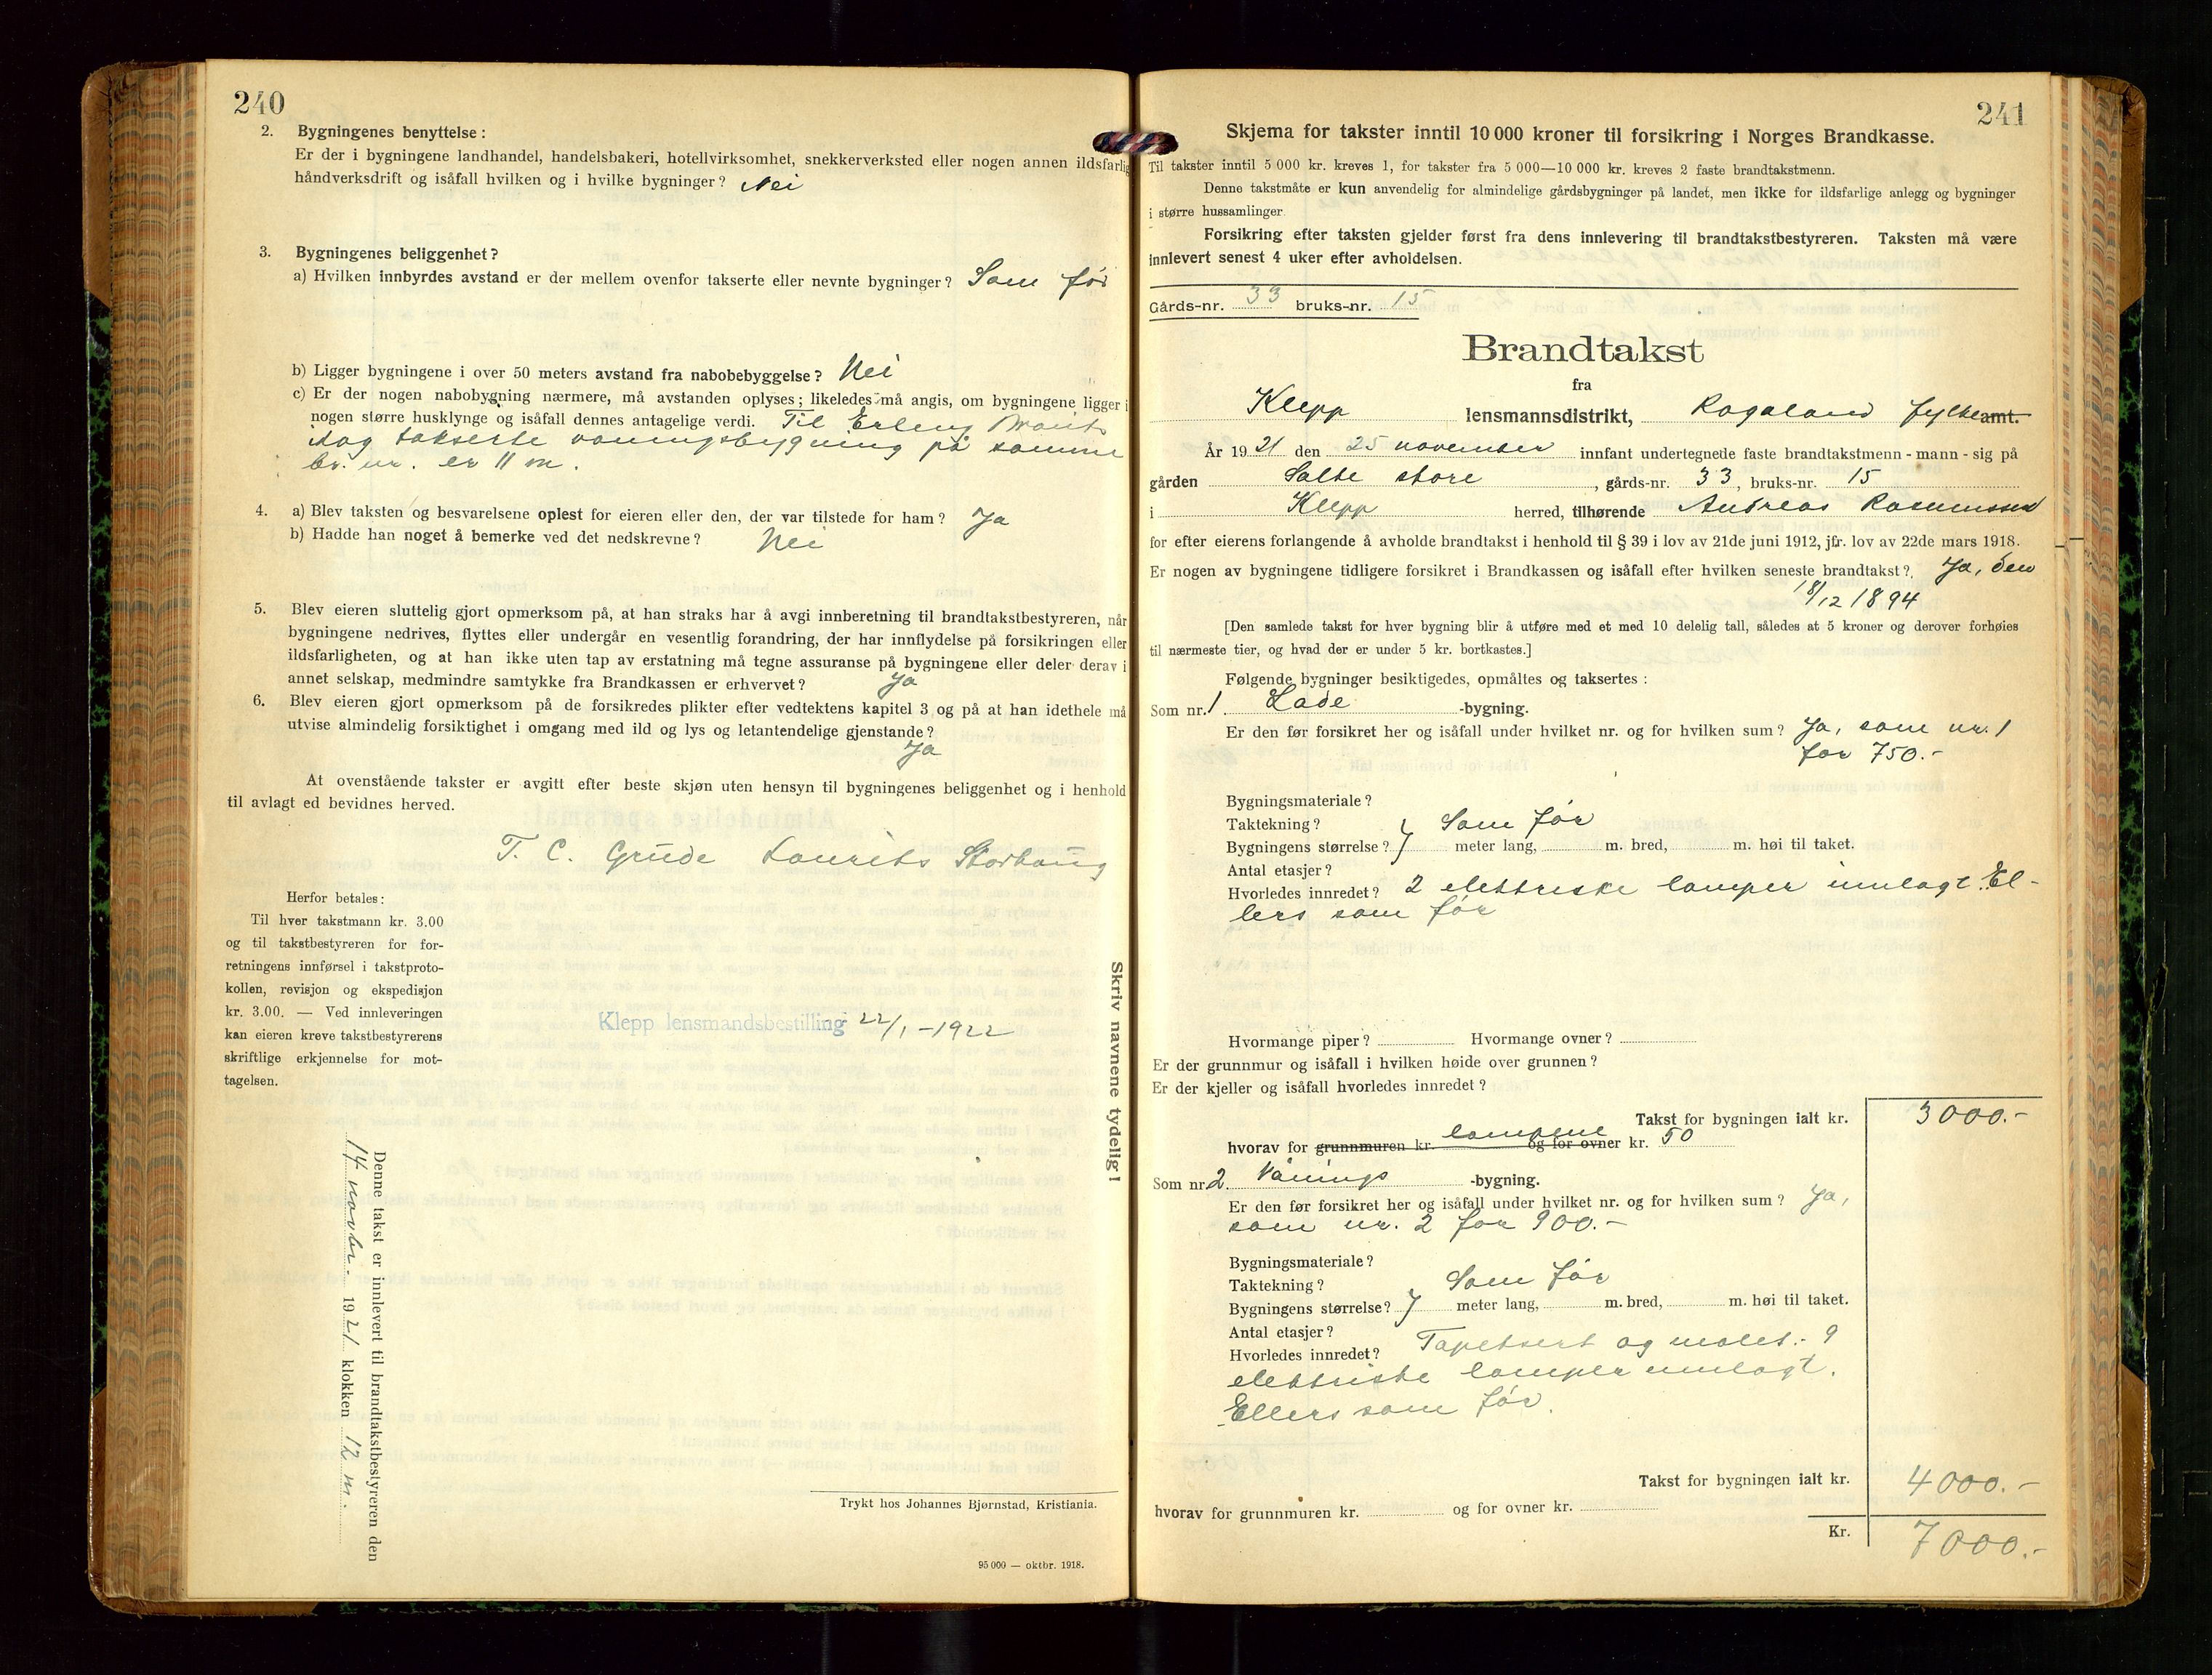 240
2. Bygningenes benyttelse:
Er der i bygningene landhandel, handelsbakeri, hotellvirksomhet, snekkerverksted eller nogen annen ildsfarlig
håndverksdrift og isåfall hvilken og i hvilke bygninger? Nei
3. Bygningenes beliggenhet?
a) Hvilken innbyrdes avstand er der mellem ovenfor takserte eller nevnte bygninger? Som før
b) Ligger bygningene i over 50 meters avstand fra nabobebyggelse? Nei
c) Er der nogen nabobygning nærmere, må avstanden oplyses; likeledes må angis, om bygningene ligger i
nogen større husklynge og isåfall dennes antagelige verdi. Til Erling
idag takserte vaaningsbygning på samme
br. nr. er 11 m.
4. a) Blev taksten og besvarelsene oplest for eieren eller den, der var tilstede for ham? Ja
b) Hadde han noget å bemerke ved det nedskrevne? Nei
5. Blev eieren sluttelig gjort opmerksom på, at han straks har å avgi innberetning til brandtakstbestyreren, når
bygningene nedrives, flyttes eller undergår en vesentlig forandring, der har innflydelse på forsikringen eller
ildsfarligheten, og at han ikke uten tap av erstatning må tegne assuranse på bygningene eller deler derav i
annet selskap, medmindre samtykke fra Brandkassen er erhvervet? Ja
6. Blev eieren gjort opmerksom på de forsikredes plikter efter vedtektens kapitel 3 og på at han idethele må
utvise almindelig forsiktighet i omgang med ild og lys og letantendelige gjenstande?
Ja
At ovenstående takster er avgitt efter beste skjøn uten hensyn til bygningenes beliggenhet og i henhold
til avlagt ed bevidnes herved.
T. C. Grude Laurits Storhaug
Herfor betales:
Til hver takstmann kr. 3.00
og til takstbestyreren for for-
retningens innførsel i takstproto-
kollen, revisjon og ekspedisjon
kr. 3.00. — Ved innleveringen
kan eieren kreve takstbestyrerens
skriftlige erkjennelse for mot-
tagelsen.
Klepp lensmandsbestilling 22/1-1922
Skriv navnene tydelig!
Denne takst er innlevert til brandtakstbestyreren den
14 novbr. 1921 klokken 12 m.
Trykt hos Johannes Bjørnstad, Kristiania.
95 000 — oktbr. 1918.
241
Skjema for takster inntil 10 000 kroner til forsikring i Norges Brandkasse.
Til takster inntil 5 000 kr. kreves 1, for takster fra 5 000—10 000 kr. kreves 2 faste brandtakstmenn.
Denne takstmåte er kun anvendelig for almindelige gårdsbygninger på landet, men ikke for ildsfarlige anlegg og bygninger
i større hussamlinger.
Forsikring efter taksten gjelder først fra dens innlevering til brandtakstbestyreren. Taksten må være
innlevert senest 4 uker efter avholdelsen.
Gårds-nr. 33 bruks-nr. 15
Brandtakst
fra
Klepp lensmannsdistrikt, Rogaland fylke amt.
År 1921 den 25 november innfant undertegnede faste brandtakstmenn - mann - sig på
gården Salte store, gårds-nr. 33, bruks-nr. 15
i Klepp herred, tilhørende Andreas Rasmussen
for efter eierens forlangende å avholde brandtakst i henhold til § 39 i lov av 21de juni 1912, jfr. lov av 22de mars 1918.
Er nogen av bygningene tidligere forsikret i Brandkassen og isåfall efter hvilken seneste brandtakst? Ja, den
18/12 1894
[Den samlede takst for hver bygning blir å utføre med et med 10 delelig tall, således at 5 kroner og derover forhøies
til nærmeste tier, og hvad der er under 5 kr. bortkastes.]
Følgende bygninger besiktigedes, opmåltes og taksertes:
Som nr. 1 Lade -bygning.
Er den før forsikret her og isåfall under hvilket nr. og for hvilken sum? Ja, som nr. 1
for 750.-
Bygningsmateriale?
Taktekning? Som før
Bygningens størrelse? meter lang, m. bred, m. høi til taket.
Antal etasjer?
Hvorledes innredet? 2 elektriske lamper innlagt. El-
lers som før
Hvormange piper? Hvormange ovner?
Er der grunnmur og isåfall i hvilken høide over grunnen?
Er der kjeller og isåfall hvorledes innredet?
Takst for bygningen ialt kr. 3000.-
hvorav for grunnmuren kr. lampene og for ovner kr. 50
Som nr. 2 Vånings -bygning.
Er den før forsikret her og isåfall under hvilket nr. og for hvilken sum? Ja,
som nr. 2 for 900.-
Bygningsmateriale?
Taktekning? Som før
Bygningens størrelse? meter lang, m. bred, m. høi til taket.
Antal etasjer?
Hvorledes innredet? Tapetsert og malet.- 9
elektriske lamper innlagt.
Ellers som før.
Takst for bygningen ialt kr. 4000.-
hvorav for grunnmuren kr. og for ovner kr.
Kr. 7000.-